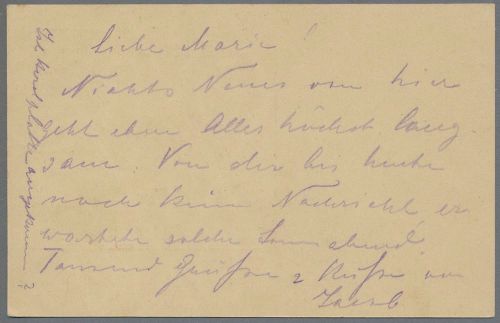 Liebe Marie!
Nichts Neues von hier
geht eben Alles höchst lang-
sam. Von dir bis heute
noch keine Nachricht, er
wartete solche Sonnabend.
Tausend Grüsse & Küsse von
Jacob
Ist Herdplatte angekommen?